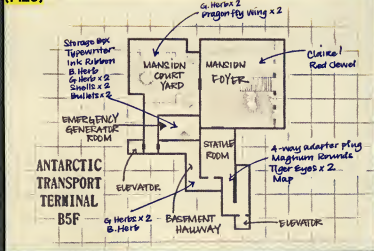 G. Herb x 2
Dragonfly Wing x 2
Storage Box
Typewriter
Ink Ribbon
B. Herb
G Herb x 2
Shells x 2
Bullets x 2
MANSION
COURT
YARD
MANSION
FOYER
Claire!
Red Jewel
EMERGENCY
GENERATOR
ROOM
STATUE
ROOM
4-way adapter plug
Magnum Rounds
Tiger Eyes x 2
Map
ANTARCTIC
TRANSPORT
TERMINAL
B5F
ELEVATOR
G Herbs x 2
B. Herb
BASEMENT
HALLWAY
ELEVATOR